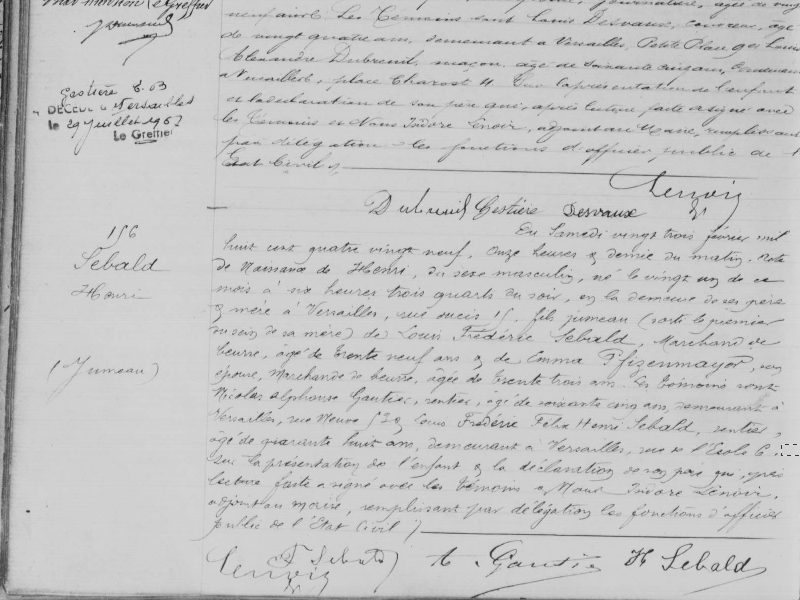 neufaiole. Les Témoins sont Louis Desvaux,
de vingt quatre ans, demeurant à Versailles, Petite Place
Alexandre Dubreuil, maçon, âgé de soixante ans, demeurant
à Versailles, place Charost 4. Sur la présentation de l'enfant
et la déclaration de son père qui, après lecture faite a signé avec
les Témoins et Nous Isidore Lenoir, adjoint au Maire, remplissant
par délégation les fonctions d'officier public de l'
Etat Civil.
Gestière
DÉCÉDÉ à Versailles
le 29 juillet 1962
Le Greffier
Lenoir
Dubreuil Gestière Desvaux
156
Sebald
Henri
(Jumeau)
Du Samedi vingt trois février mil
huit cent quatre vingt neuf, onze heures & demie du matin. Acte
de Naissance de Henri, du sexe masculin, né le vingt un de ce
mois à six heures trois quarts du soir, en la demeure de ses père
& mère à Versailles, rue 15, fils jumeau (sorti le premier
du sein de sa mère) de Louis Frédéric Sebald, Marchand de
beurre, âgé de trente neuf ans & de Emma Pfizenmayor, son
épouse, Marchande de beurre, âgée de trente trois ans. Les témoins sont
Nicolas Alphonse Gautier, rentier, âgé de soixante cinq ans, demeurant à
Versailles, rue Neuve & Louis Frédéric Félix Henri Sebald, rentier,
âgé de quarante huit ans, demeurant à Versailles, rue de l'Ecole
sur la présentation de l'enfant & la déclaration de son père qui, après
lecture faite a signé avec les témoins & Nous Isidore Lenoir,
adjoint au maire, remplissant par délégation les fonctions d'officier
public de l'Etat Civil
Lenoir F Sebald A. Gautier H Sebald